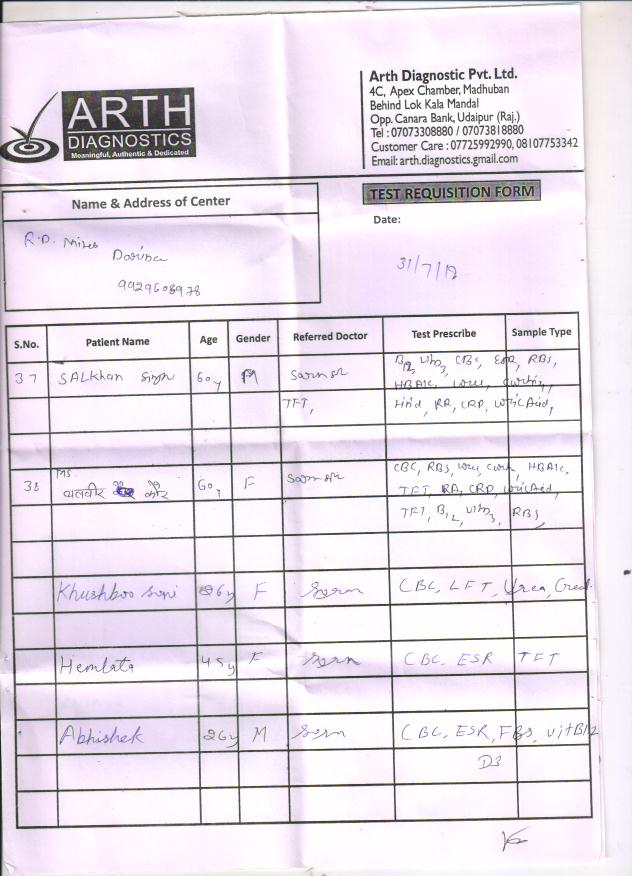 ARTH
DIAGNOSTICS
Meaningful, Authentic & Dedicated
Arth Diagnostic Pvt. Ltd.
4C, Apex Chamber, Madhuban
Behind Lok Kala Mandal
Opp. Canara Bank, Udaipur (Raj.)
Tel : 07073308880 / 07073818880
Customer Care : 07725992990, 08107753342
Email: arth.diagnostics.gmail.com
Name & Address of Center
TEST REQUISITION FORM
Date:
R.D. Mines
9929608978
31/7/17
S.No. Patient Name Age Gender Referred Doctor Test Prescribe Sample Type
37 SALKhan Singh 60y M B12, vitD3, CBC, ESR, RBS,
HBA1C,
TFT, RA, CRP, Uric Acid,
38 Ms. बलवीर कौर 60y F CBC, RBS, HBA1C,
TFT, RA, CRP, Uric Acid,
TFT, B12, vitD3, RBS,
Khushboo Soni 26y F CBC, LFT, Urea, Creat.
Hemlata 45y F CBC, ESR TFT
Abhishek 26y M CBC, ESR, FBS, vitB12
D3